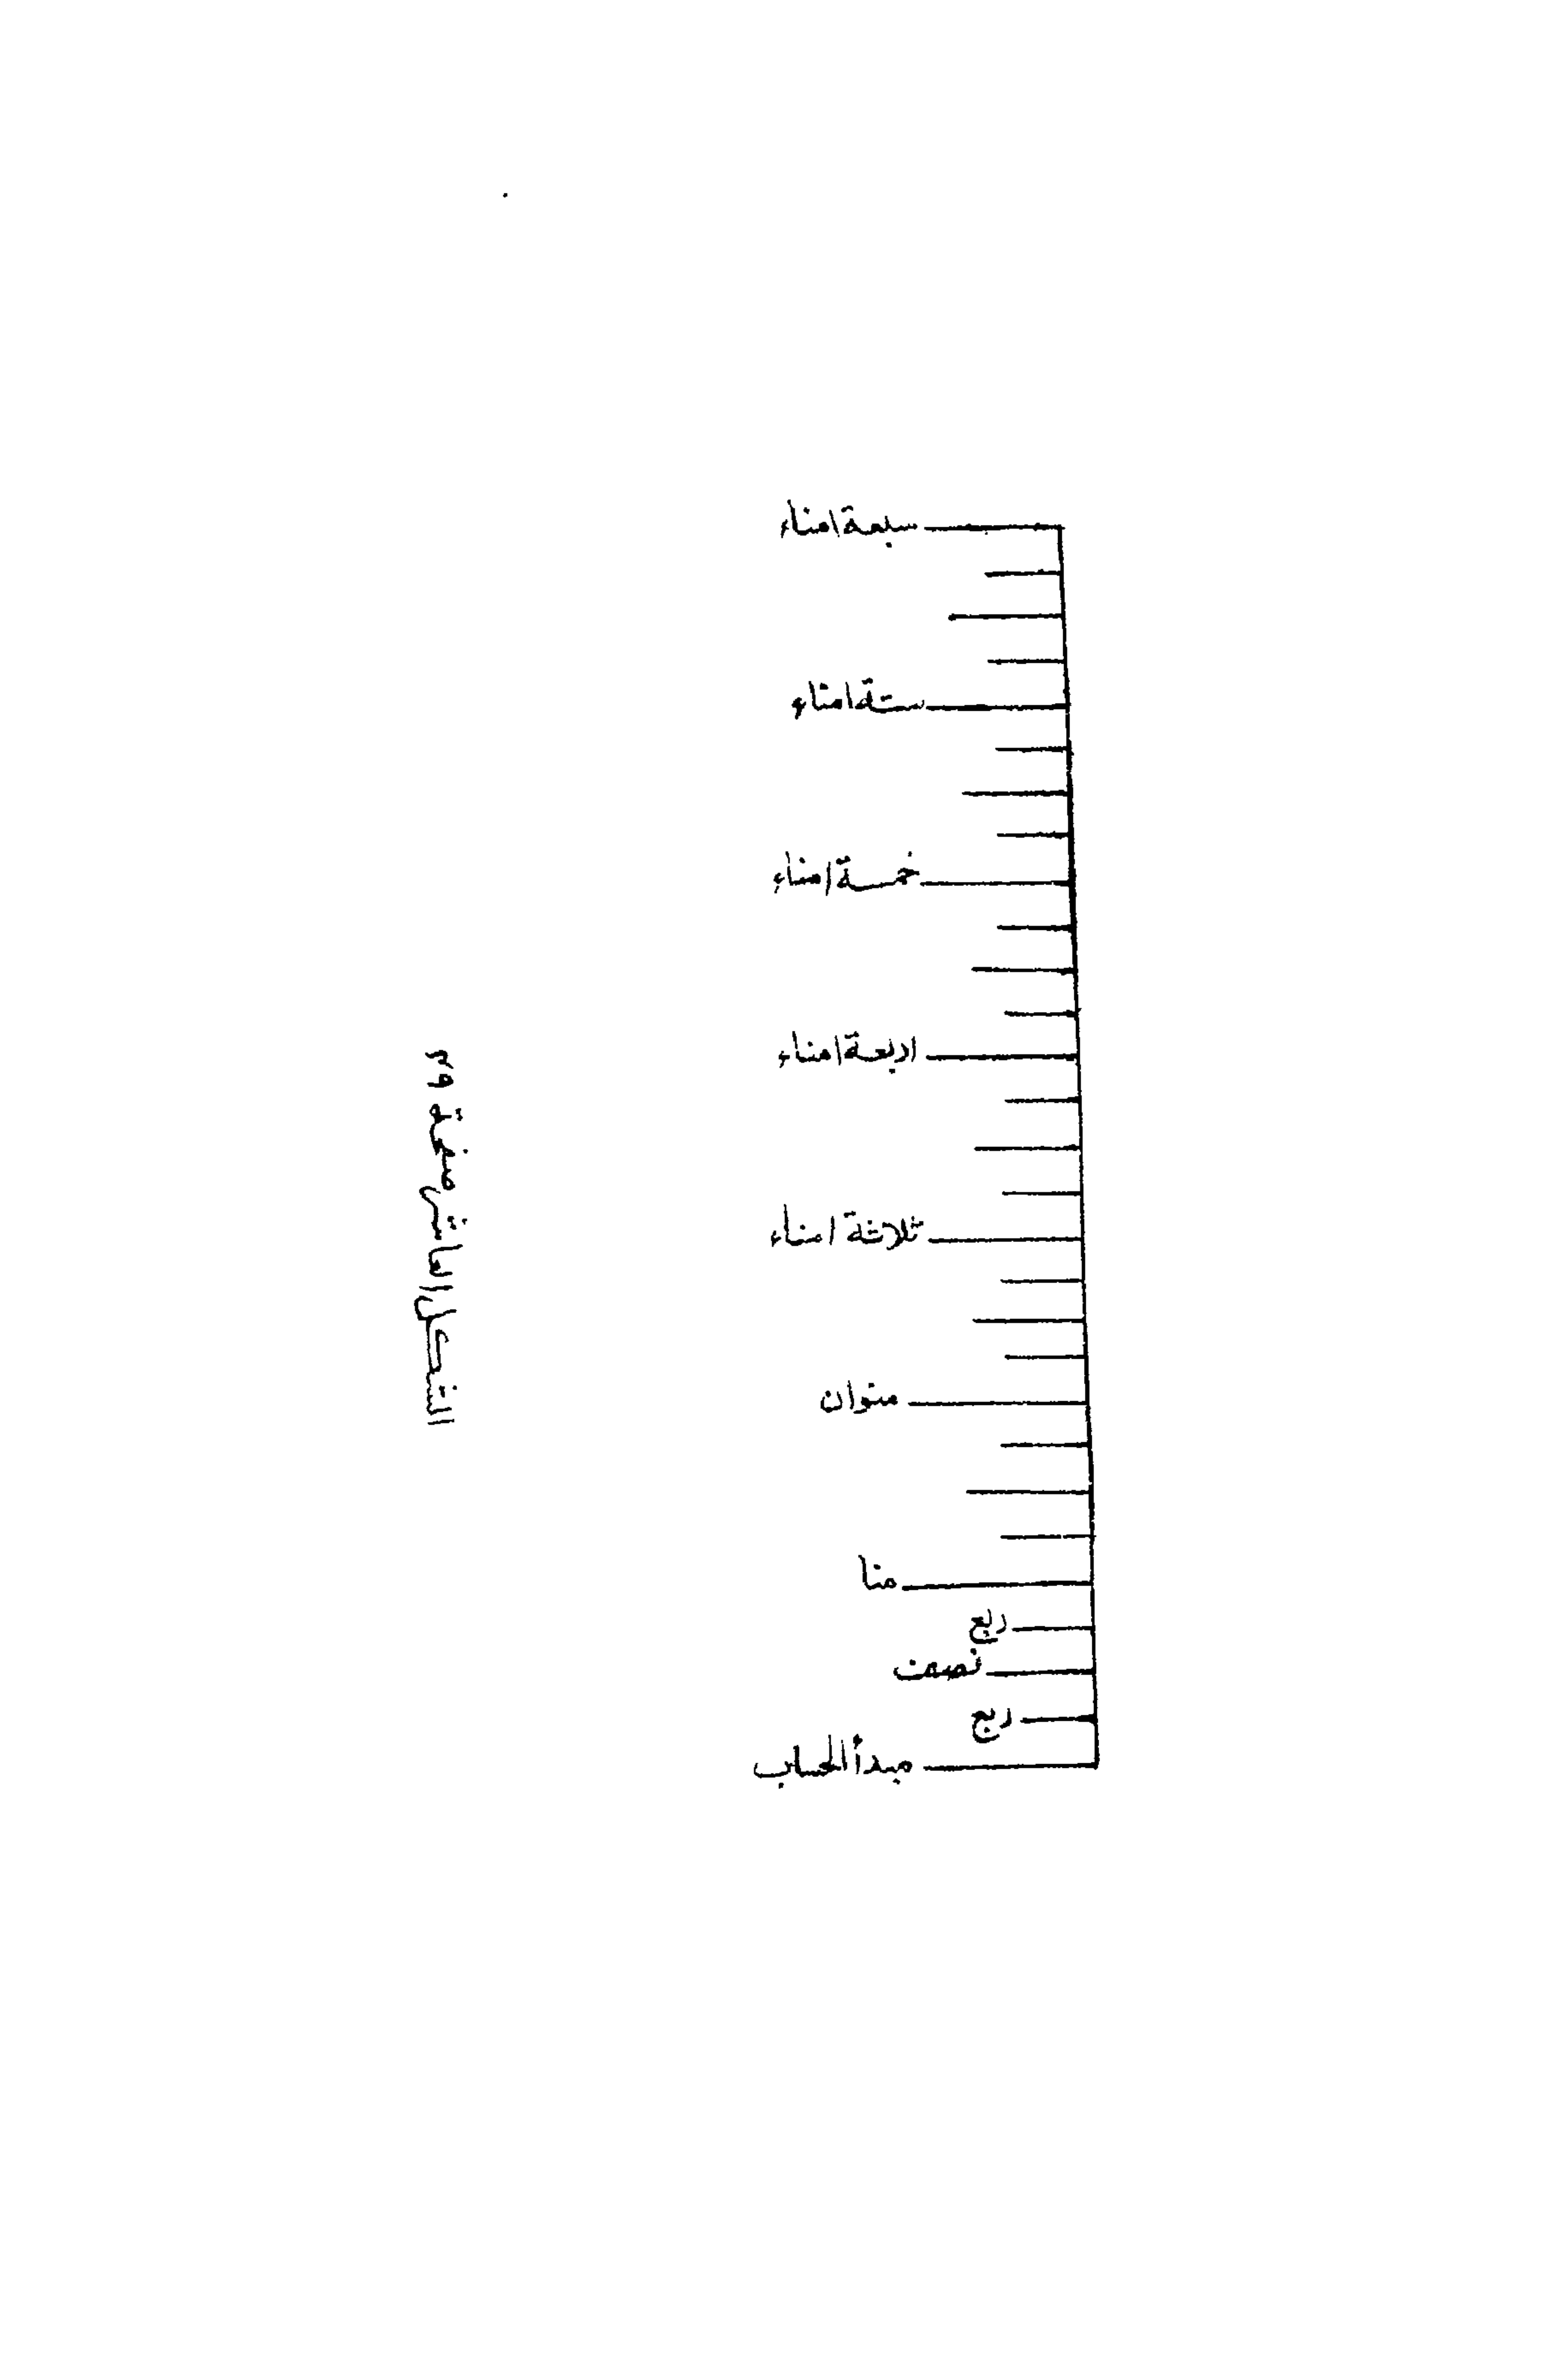 سبعة امناء
ستة امناء
خمسة امناء
اربعة امناء
ثلاثة امناء
منوان
منا
ربع
نصف
ربع
مبدأ الحساب
الشكل العاشر صفحة ٣٩